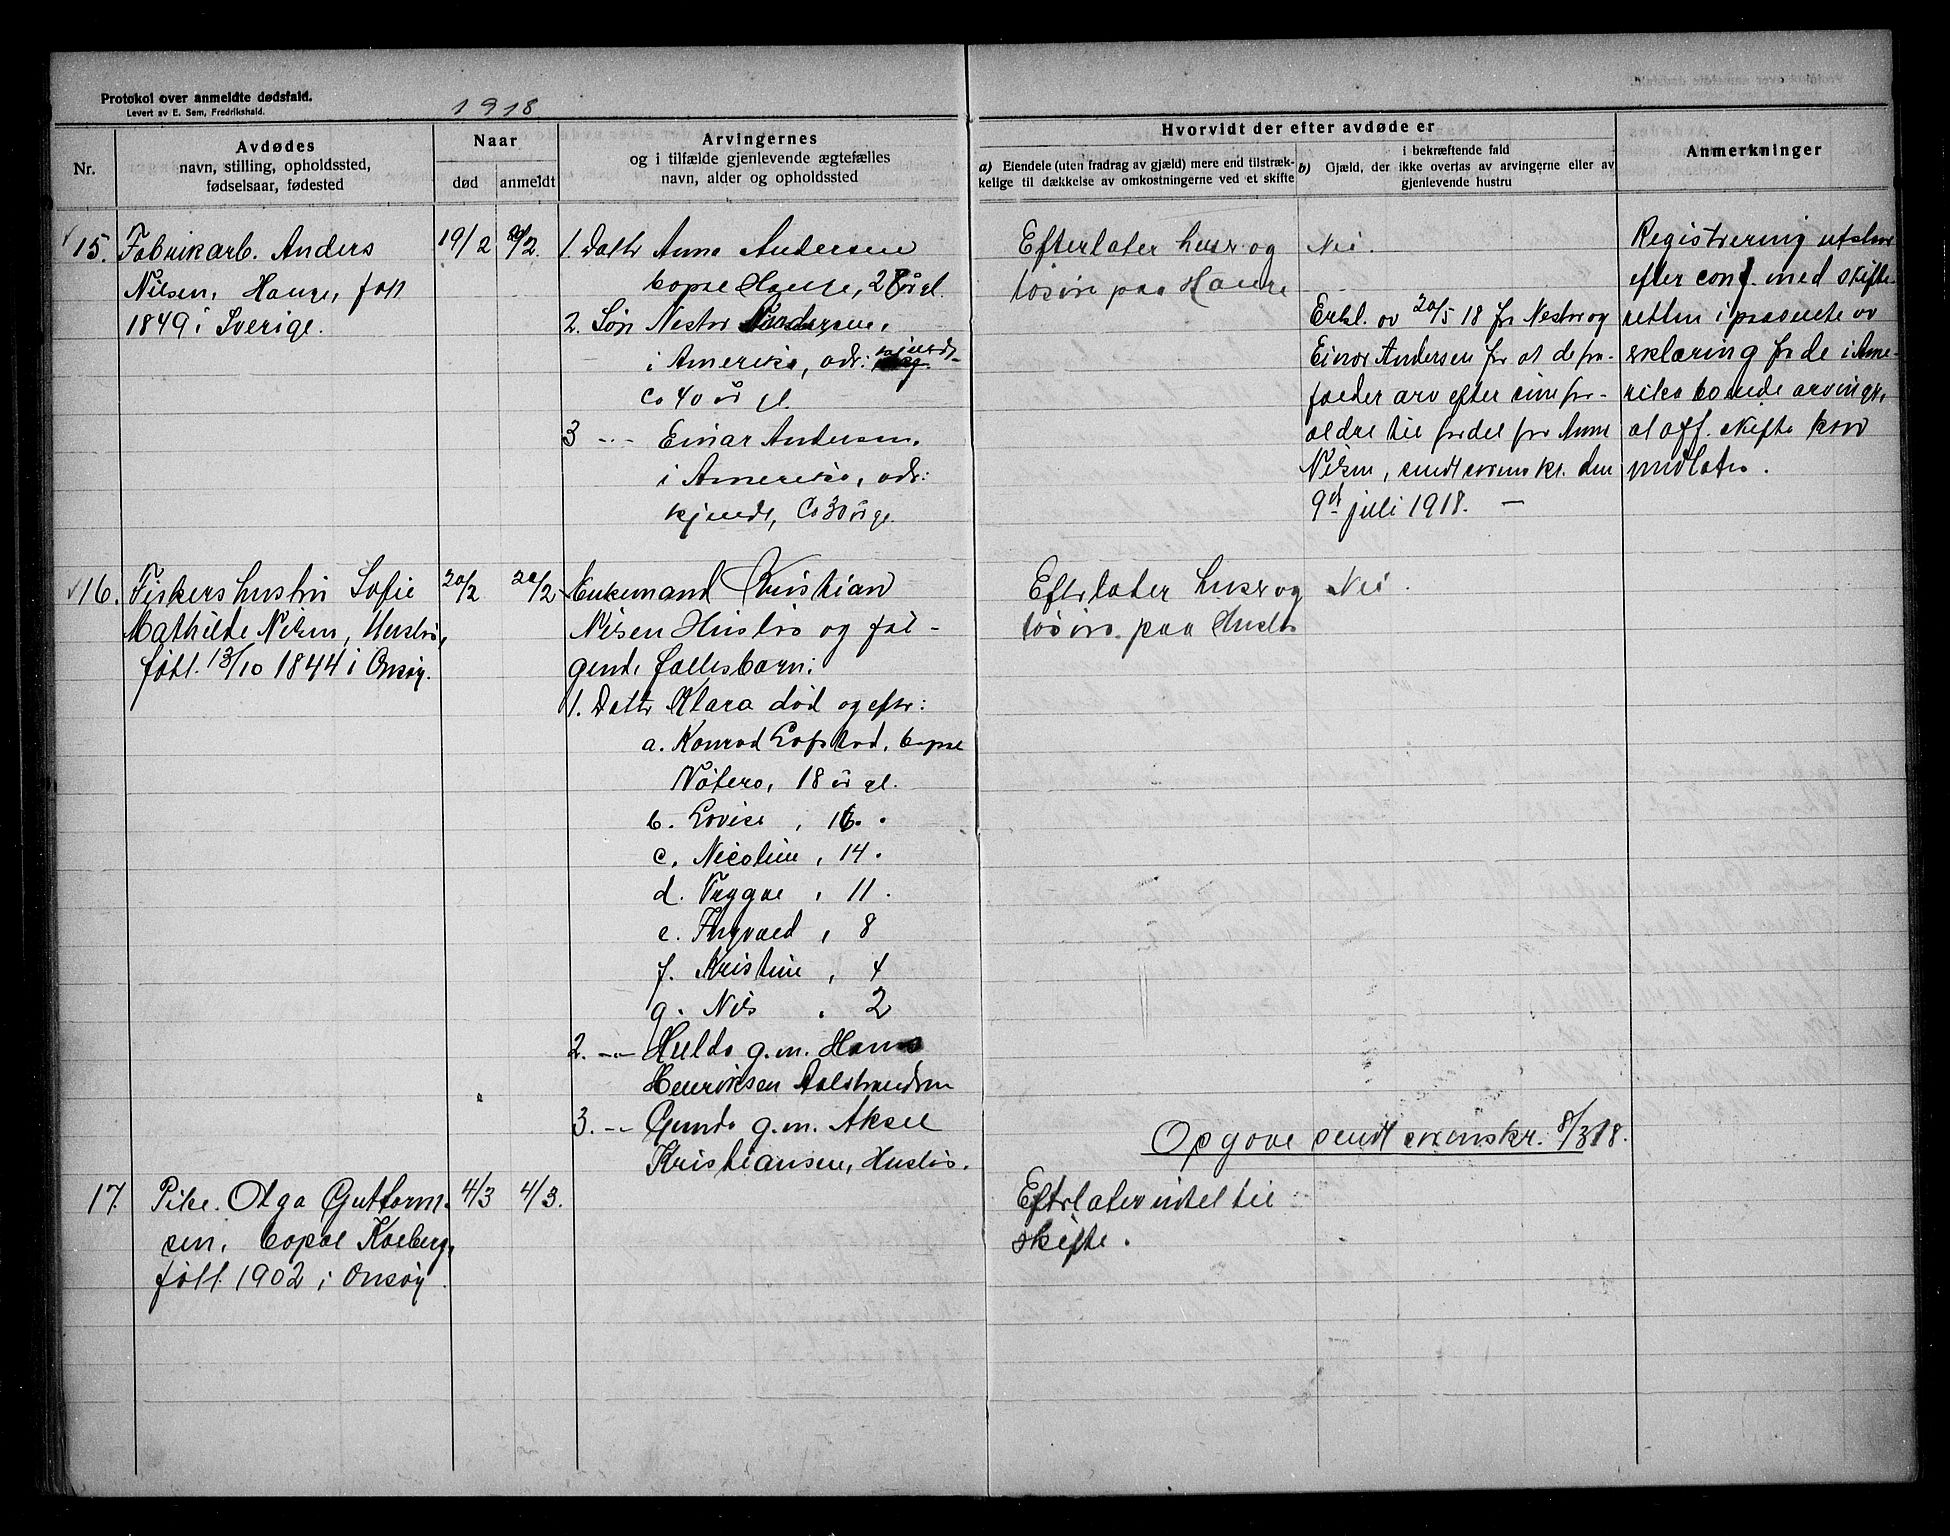 Protokol over anmeldte dødsfald.
Levert av E. Sem, Fredrikshald.
1918
Nr.
Avdødes
navn, stilling, opholdssted,
fødselsaar, fødested
Naar
død
anmeldt
Arvingernes
og i tilfælde gjenlevende ægtefælles
navn, alder og opholdssted
Hvorvidt der efter avdøde er
a) Eiendele (uten fradrag av gjæld) mere end tilstræk-
kelige til dækkelse av omkostningerne ved et skifte
i bekræftende fald
b) Gjæld, der ikke overtas av arvingerne eller av
gjenlevende hustru
Anmerkninger
15. Fabrikarb. Anders
Nilsen, Hauge, født
1849 i Sverige.
19/2
20/2.
1. Datter Anna Andersen
bopæl Hauge, 28 år gl.
2. Søn Nestor Andersen,
i Amerika, adr: ukjendt
ca 40 år gl.
3 -"- Einar Andersen,
i Amerika, adr:
ukjendt, ca 30 år gl.
Efterlater huser og
løsøre paa Hauge
Nei.
Erkl. av 20/5 18 fr Nestor og
Einar Andersen for at de fra-
falder arv efter sine for-
ældre til fordel for Anna
Nilsen, sendt sorenskr. den
9de juli 1918. —
Registrering utstaar
efter conf. med skifte-
retten i paavente av
erklæring fra de i Ame-
rika boende arvinger,
at off. skifte kan
undlates.
16. Fiskershustru Sofie
Mathilde Nilsen, Huslø,
født 13/10 1844 i Onsøy.
20/2
20/2
Enkemand Kristian
Nilsen Huslø og føl-
gende fællesbarn:
1. Datter Klara død og efter:
a. Konrad Lofstad, bopæl
Nøterø, 18 år gl.
b. Lovise , 16 .
c. Nicoline , 14 .
d. Trygve , 11 .
e. Thorvald , 8
f. Kristine , 4
g. Nils , 2
2. -"- Hulda g.m. Hans
Henriksen Aalstrandsen
3. -"- Gunda g.m. Aksel
Kristiansen, Huslø.
Efterlater huser og
løsøre paa Huslø
Nei.
Opgave sendt sorenskr. 8/3 18.
17. Pike Olga Guttorm-
sen, bopæl Kaeberg,
født 1902 i Onsøy.
4/3
4/3.
Efterlater intet til
skifte.